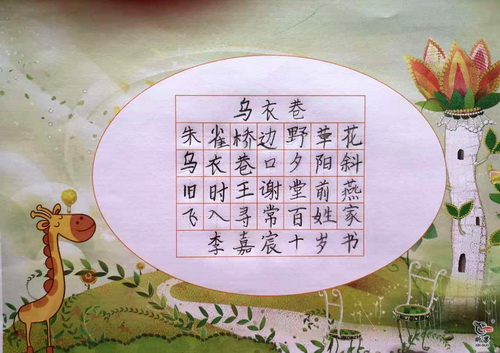 乌衣巷
朱雀桥边野草花
乌衣巷口夕阳斜
旧时王谢堂前燕
飞入寻常百姓家
李嘉宸十岁书